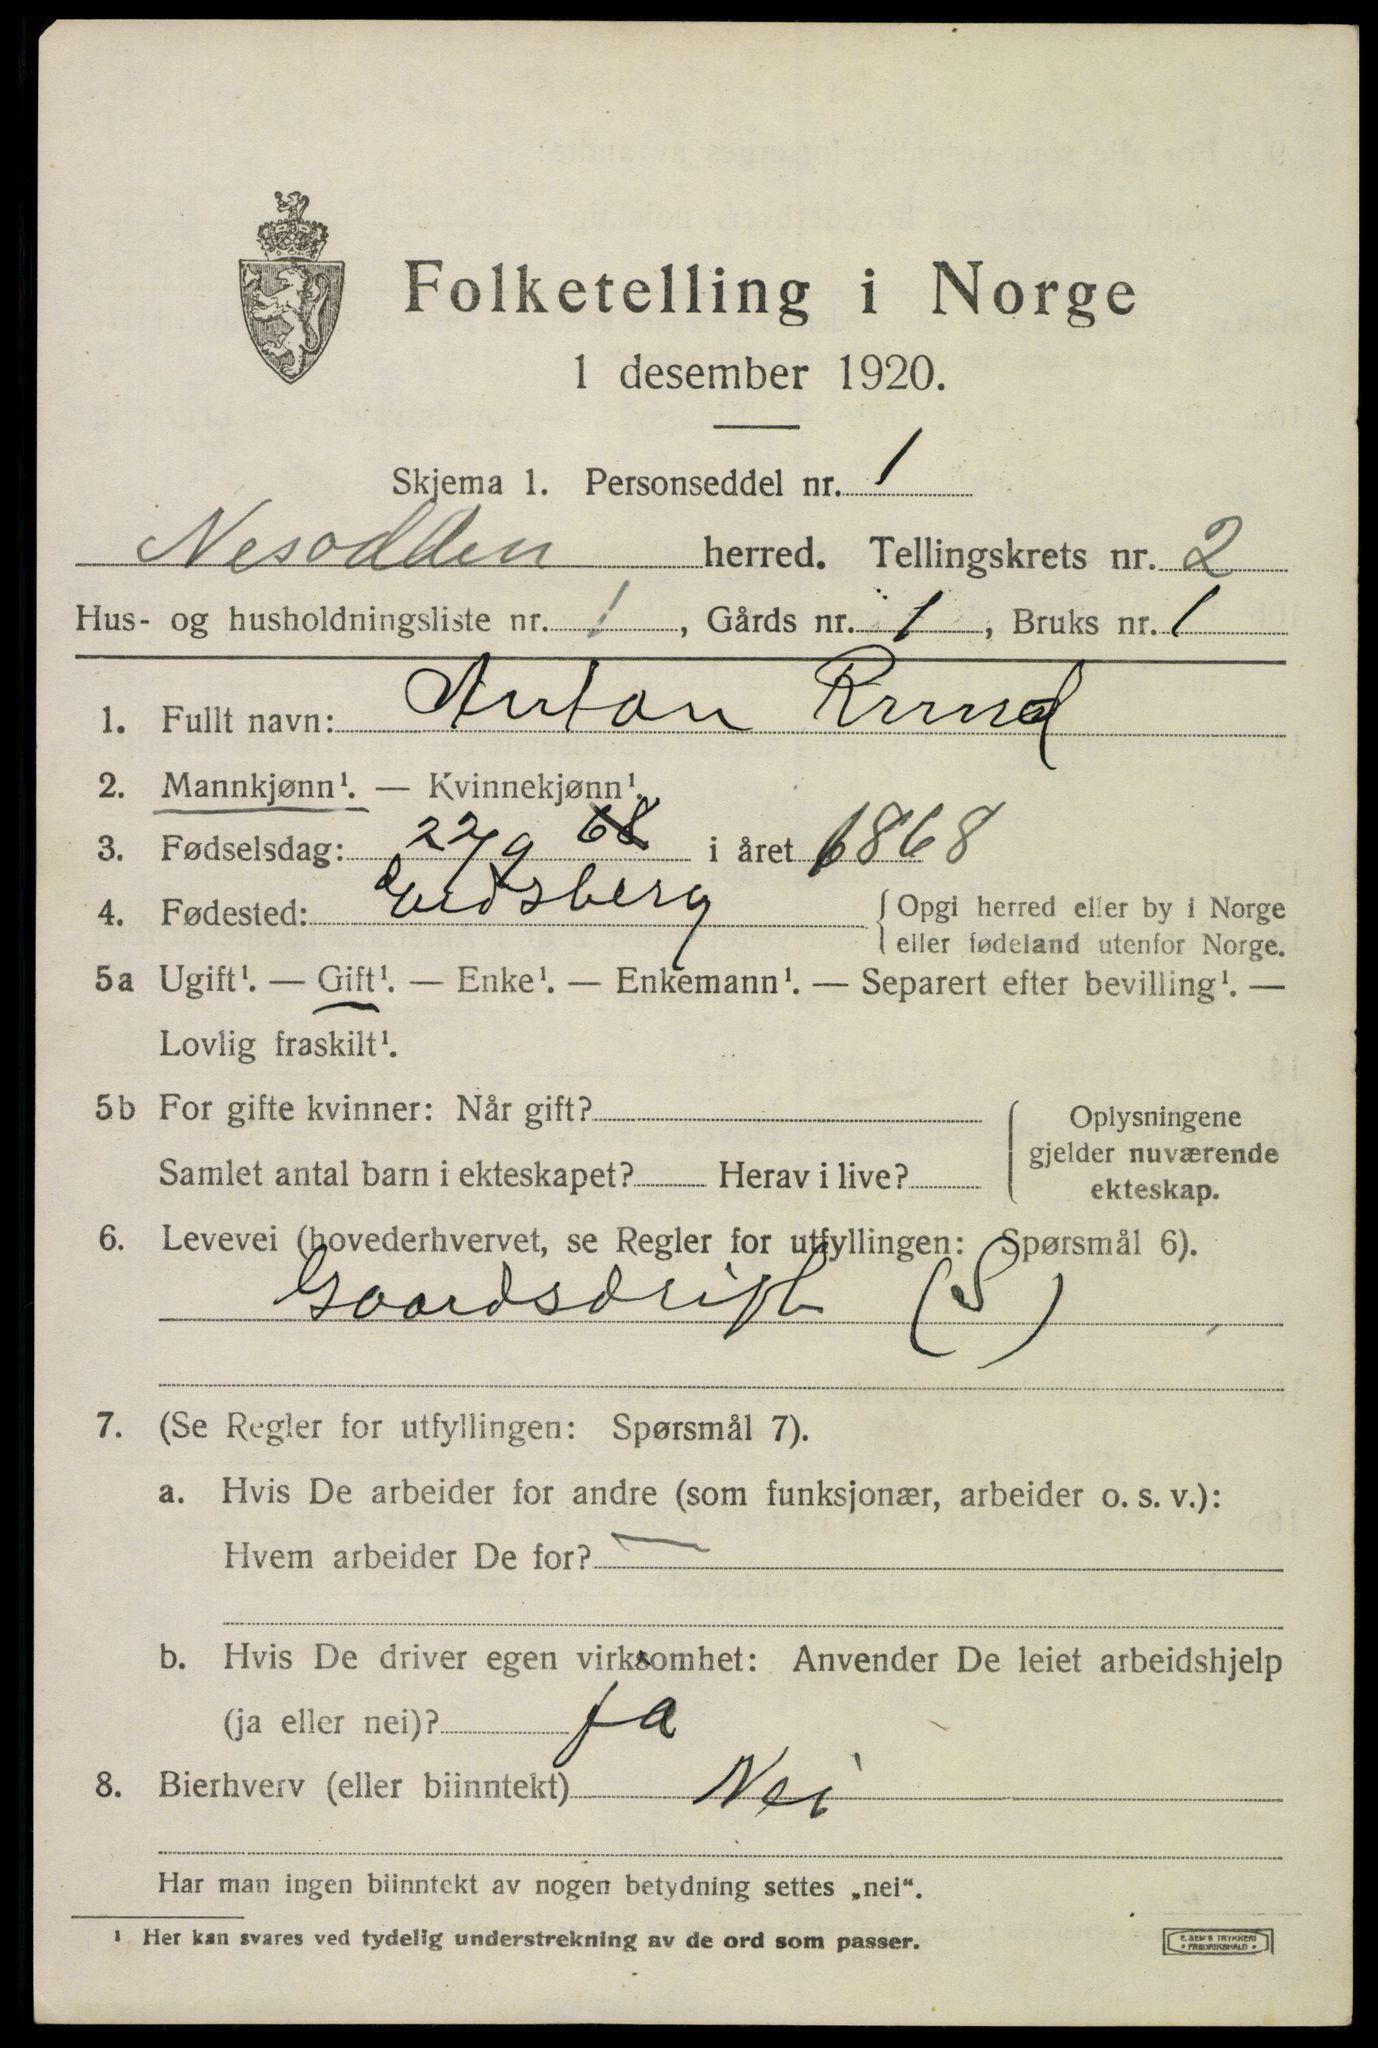 Folketelling i Norge
1 desember 1920.
Skjema 1. Personseddel nr. 1
Nesodden herred. Tellingskrets nr. 2
Hus- og husholdningsliste nr. 1, Gårds nr. 1, Bruks nr. 1
1. Fullt navn: Anton Ruud
2. Mannkjønn¹. — Kvinnekjønn¹.
3. Fødselsdag: 22/9 68 i året 1868
4. Fødested: Eidsberg {Opgi herred eller by i Norge
eller fødeland utenfor Norge.
5a Ugift¹. — Gift¹. — Enke¹. — Enkemann¹. — Separert efter bevilling¹. —
Lovlig fraskilt¹.
5b For gifte kvinner: Når gift?
Samlet antal barn i ekteskapet? Herav i live?
Oplysningene
gjelder nuværende
ekteskap.
6. Levevei (hovederhvervet, se Regler for utfyllingen: Spørsmål 6).
Gaardsdrift (S)
7. (Se Regler for utfyllingen: Spørsmål 7).
a. Hvis De arbeider for andre (som funksjonær, arbeider o. s. v.):
Hvem arbeider De for? —
b. Hvis De driver egen virksomhet: Anvender De leiet arbeidshjelp
(ja eller nei)? ja
8. Bierhverv (eller biinntekt) Nei
Har man ingen biinntekt av nogen betydning settes „nei“.
¹ Her kan svares ved tydelig understrekning av de ord som passer.
E. SEM'S TRYKKERI
FREDRIKSHALD